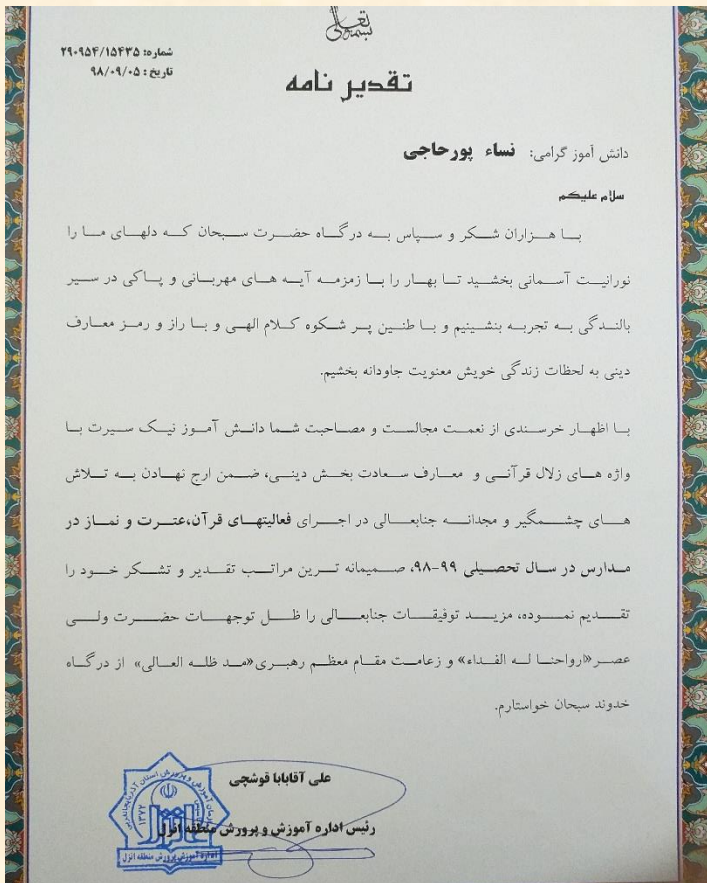 بسمه تعالی
شماره: ۲۹۰۹۵۴/۱۵۴۳۵
تاریخ: ۹۸/۰۹/۰۵
تقدیر نامه
دانش آموز گرامی: نساء پورحاجی
سلام علیکم
با هزاران شکر و سپاس به درگاه حضرت سبحان که دلهای ما را
نورانیت آسمانی بخشید تا بهار را با زمزمه آیه های مهربانی و پاکی در سیر
بالندگی به تجربه بنشینیم و با طنین پر شکوه کلام الهی و با راز و رمز معارف
دینی به لحظات زندگی خویش معنویت جاودانه بخشیم.
با اظهار خرسندی از نعمت مجالست و مصاحبت شما دانش آموز نیک سیرت با
واژه های زلال قرآنی و معارف سعادت بخش دینی، ضمن ارج نهادن به تلاش
های چشمگیر و مجدانه جنابعالی در اجرای فعالیتهای قرآن،عترت و نماز در
مدارس در سال تحصیلی ۹۹-۹۸، صمیمانه ترین مراتب تقدیر و تشکر خود را
تقدیم نموده، مزید توفیقات جنابعالی را ظل توجهات حضرت ولی
عصر«ارواحنا له الفداء» و زعامت مقام معظم رهبری«مد ظله العالی» از درگاه
خدوند سبحان خواستارم.
علی آقابابا قوشچی
رئیس اداره آموزش و پرورش منطقه انزل
سازمان آموزش و پرورش استان آذربایجانغربی
۱۳۷۲
انزل
اداره آموزش پرورش منطقه انزل